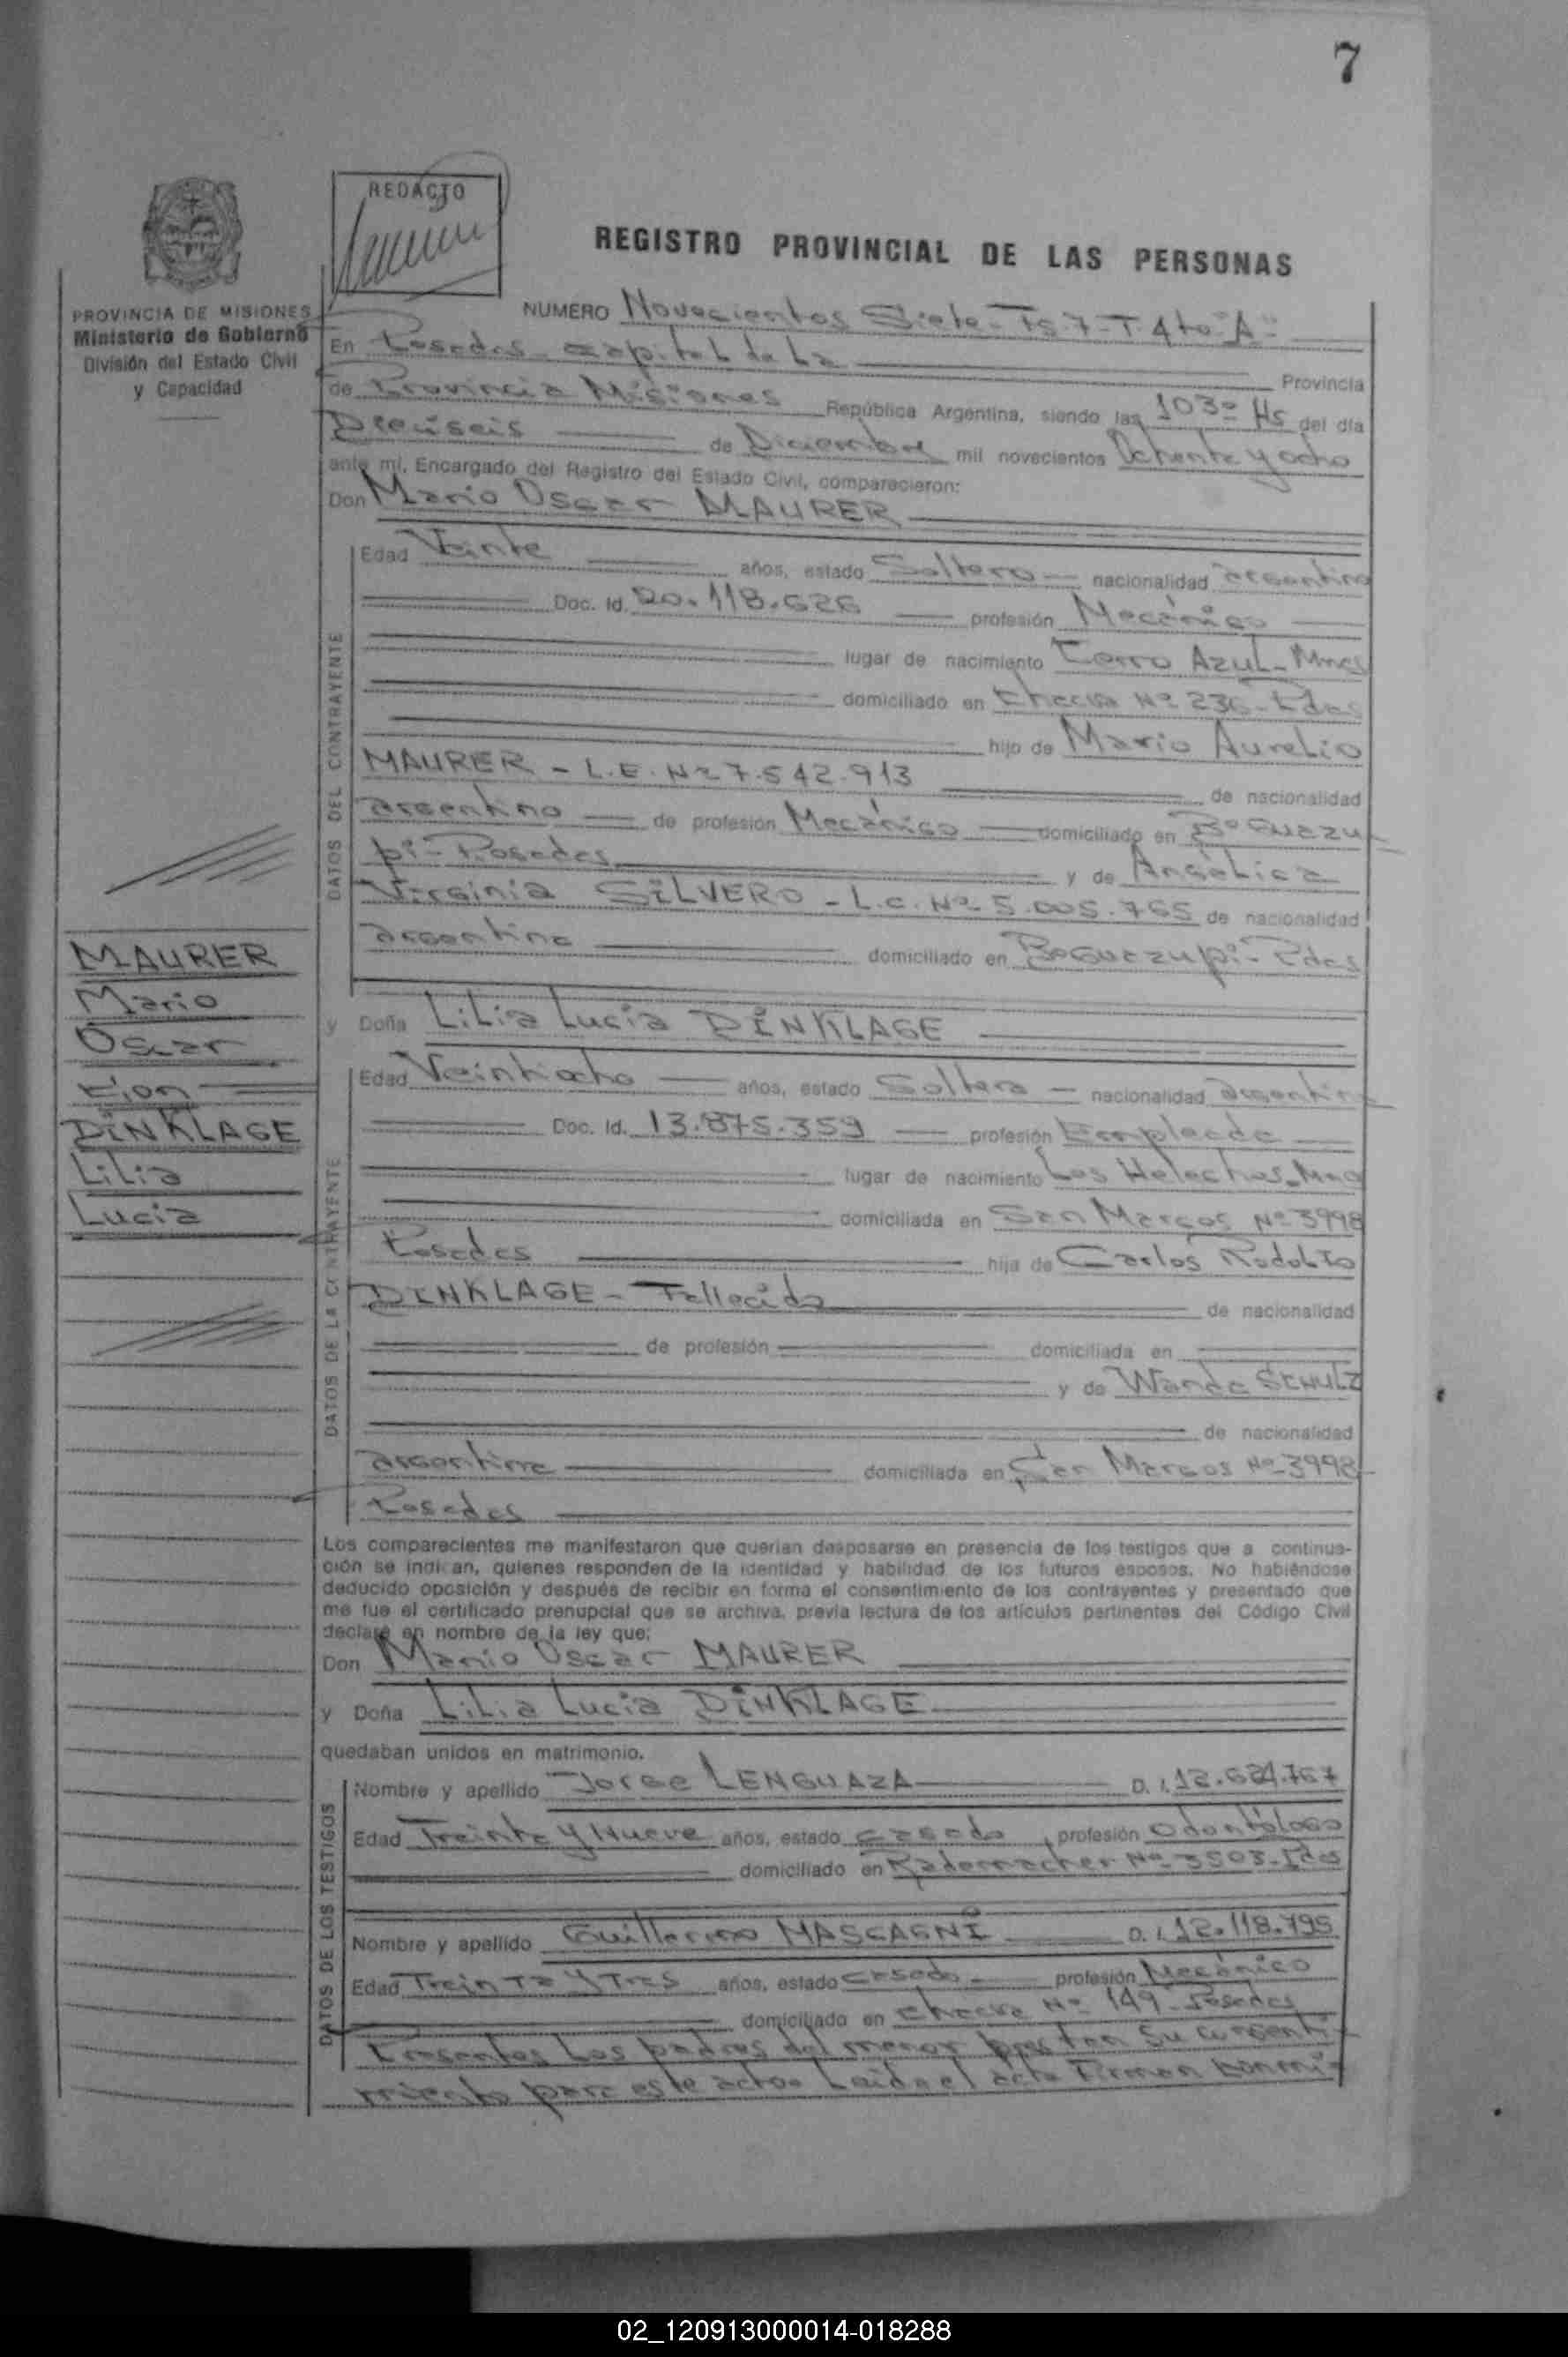 7
REDACTO
REGISTRO PROVINCIAL DE LAS PERSONAS
PROVINCIA DE MISIONES
Ministerio de Gobierno
División del Estado Civil
y Capacidad
NUMERO Novecientos Siete - Fs 7 - T. 4to "A"
En Posadas - capital de La Provincia
de Provincia Misiones República Argentina, siendo las 1030 Hs del día
Dieciseis de Diciembre mil novecientos Ochenta y ocho
ante mi, Encargado del Registro del Estado Civil, comparecieron:
Don Mario Oscar MAURER
DATOS DEL CONTRAYENTE
Edad Veinte años, estado Soltero nacionalidad argentina
Doc. Id. 20.118.626 profesión Mecánico
lugar de nacimiento Cerro Azul - Mnes
domiciliado en Chacra Nº 236 - Pdas
hijo de Mario Aurelio
MAURER - L.E. Nº 7.542.913 de nacionalidad
argentino de profesión Mecánico domiciliado en Bº Guazu
pi - Posadas y de Angélica
Virginia SILVERO - L.C. Nº 5.005.765 de nacionalidad
argentina domiciliado en Bº Guazupi - Pdas
y Doña Lilia Lucia DINKLAGE
MAURER
Mario
Oscar
con
DINKLAGE
Lilia
Lucia
DATOS DE LA CONTRAYENTE
Edad Veintiocho años, estado Soltera nacionalidad argentina
Doc. Id. 13.875.359 profesión Empleada
lugar de nacimiento Los Helechos - Mnes
domiciliada en San Marcos Nº 3998
Posadas hija de Carlos Rodolfo
DINKLAGE - Fallecido de nacionalidad
de profesión domiciliada en
y de Wanda SCHULZ
de nacionalidad
argentina domiciliada en San Marcos Nº 3998
Posadas
Los comparecientes me manifestaron que querían desposarse en presencia de los testigos que a continua-
ción se indican, quienes responden de la identidad y habilidad de los futuros esposos. No habiéndose
deducido oposición y después de recibir en forma el consentimiento de los contrayentes y presentado que
me fue el certificado prenupcial que se archiva, previa lectura de los artículos pertinentes del Código Civil
declaré en nombre de la ley que:
Don Mario Oscar MAURER
y Doña Lilia Lucia DINKLAGE
quedaban unidos en matrimonio.
DATOS DE LOS TESTIGOS
Nombre y apellido Jorge LENGUAZA D. I. 12.624.767
Edad Treinta y Nueve años, estado casado profesión Odontólogo
domiciliado en Rademacher Nº 3503 - Pdas
Nombre y apellido Guillermo MASCAGNI D. I. 12.118.795
Edad Treinta y Tres años, estado casado profesión Mecánico
domiciliado en chacra Nº 149 - Posadas
Presentes Los padres del menor prestan su consenti-
miento para este acto. Leida el acta Firman conmi-
02_120913000014-018288